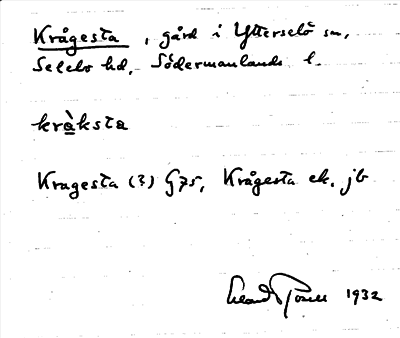 Krågesta, gård i Ytterselö sn,
Selebo hd, Södermanlands l.
kràksta
Kragesta (?) G75, Krågesta ek. jb
1932